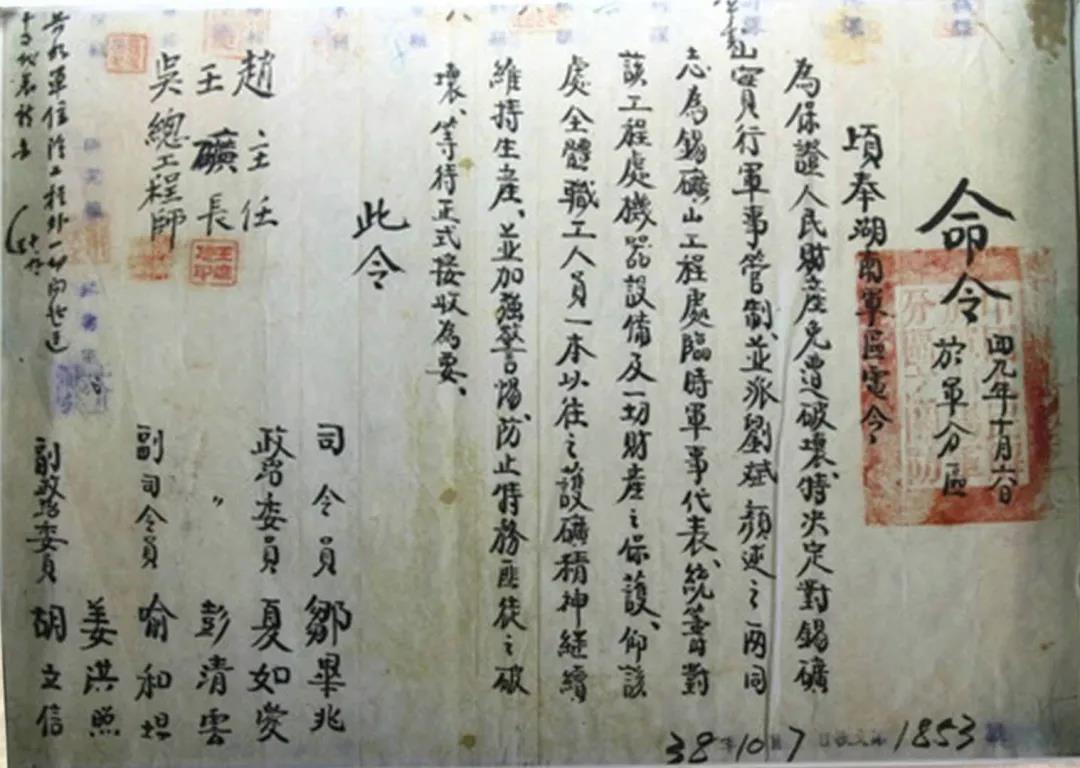 命令
四九年十月六日
於軍分區
頃奉湖南軍區電令
為保證人民財產免遭破壞，特決定對錫礦
山實行軍事管制，並派劉斌顏速之兩同
志為錫礦山工程處臨時軍事代表，統籌對
該工程處機器設備及一切財產之保護，仰該
處全體職工人員一本以往之護礦精神繼續
維持生產，並加強警惕，防止特務匪徒之破
壞，等待正式接收為要。
此令
趙主任
王礦長
吳總工程師
司令員 鄒畢兆
政治委員 夏如愛
〃 彭清雲
副司令員 喻和坦
姜洪照
副政治委員 胡立信
38 10 7
1853